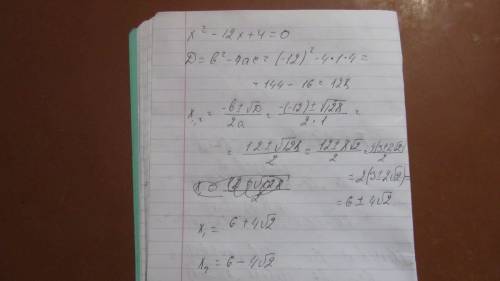 x² - 12x + 4 = 0
D = b² - 4ac = (-12)² - 4·1·4 =
= 144 - 16 = 128
x₁,₂ = (-b ± √D)/(2a) = (-(-12) ± √128)/(2·1) =
= (12 ± √128)/2 = (12 ± 8√2)/2 = 4(3 ± 2√2)/2
= 2(3 ± 2√2) =
= 6 ± 4√2
x₁ = 6 + 4√2
x₂ = 6 - 4√2